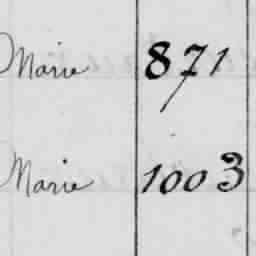 Marie 871
Marie 1003